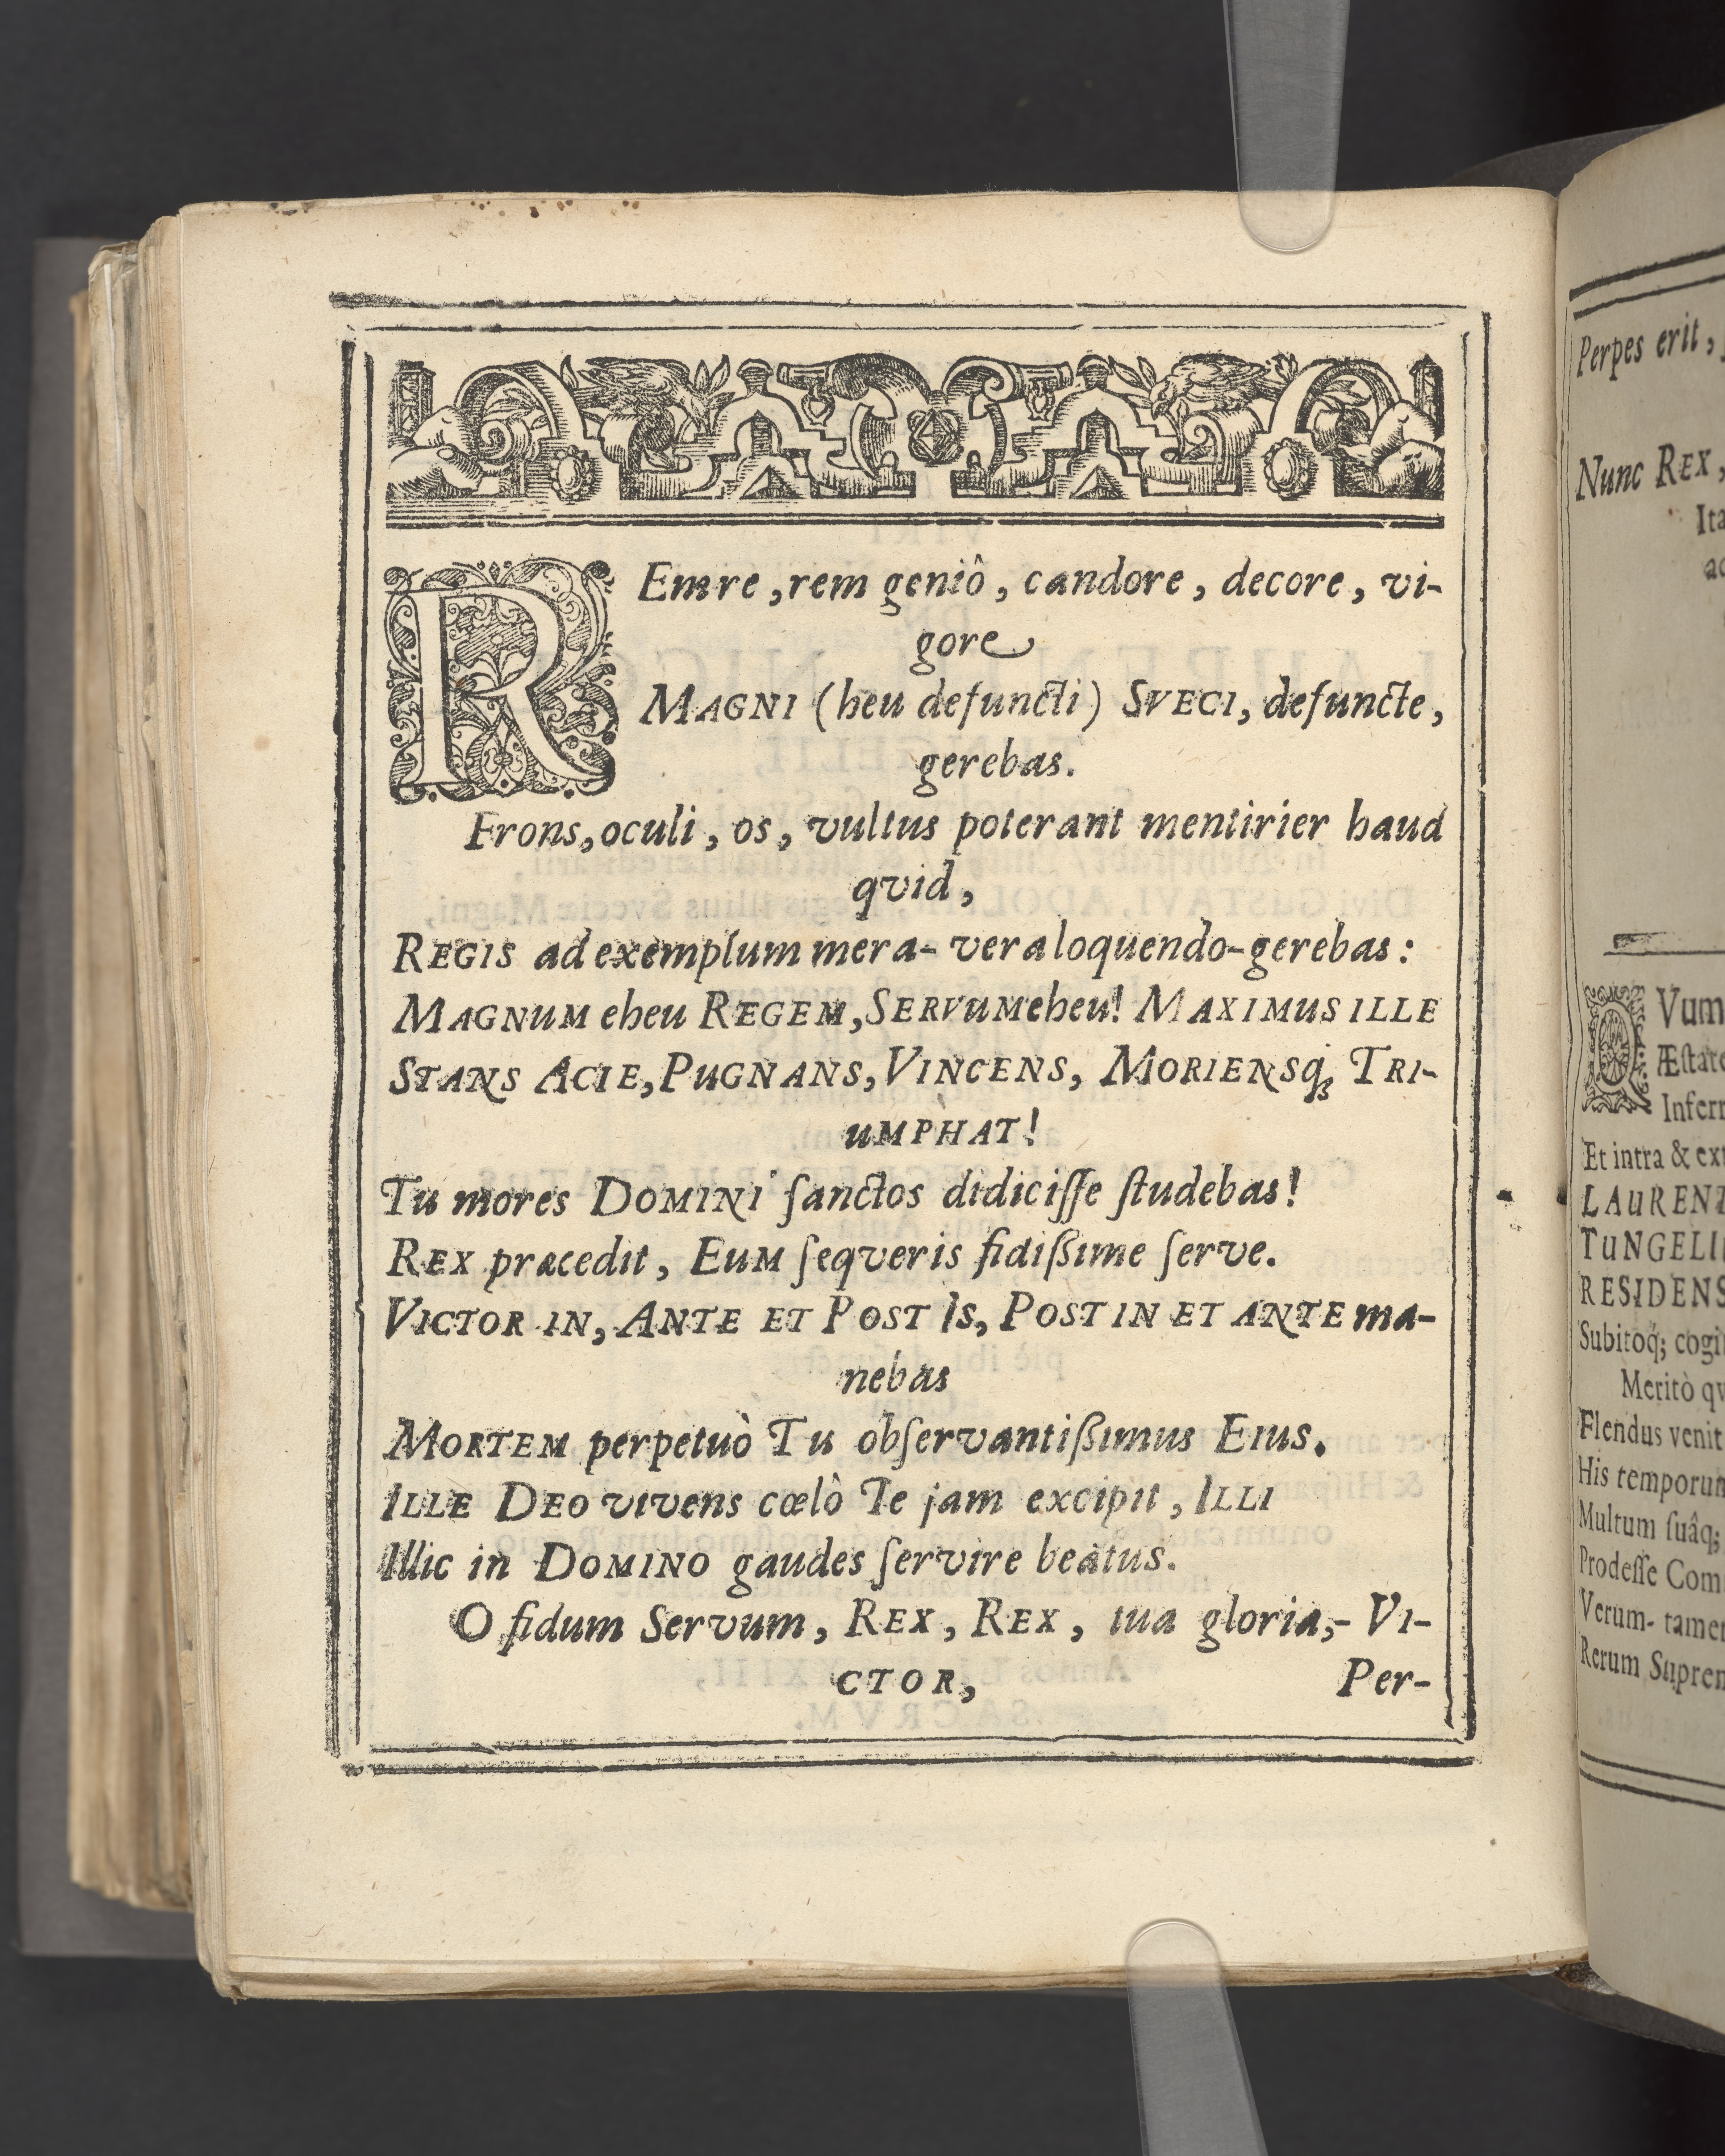 REmre, rem geniô, candore, decore, vi-
gore
MAGNI (heu defuncti) SVECI, defuncte,
gerebas.
Frons, oculi, os, vultus poterant mentirier haud
qvid,
REGIS ad exemplum mera- vera loquendo- gerebas:
MAGNUM eheu REGEM, SERVUM eheu! MAXIMUS ILLE
STANS ACIE, PUGNANS, VINCENS, MORIENSq; TRI-
UMPHAT!
Tu mores DOMINI ſanctos didiciſſe ſtudebas!
REX præcedit, EUM ſeqveris fidiſsime ſerve.
VICTOR IN, ANTE ET POST IS, POST IN ET ANTE ma-
nebas
MORTEM perpetuò Tu obſervantiſsimus EIUS.
ILLE DEO vivens cœlô Te jam excipit, ILLI
Illic in DOMINO gaudes ſervire beatus.
O fidum Servum, REX, REX, tua gloria,- VI-
CTOR,
Per-
Perpes erit,
Nunc REX,
Ita
QVum
Æſtate
Infer
Et intra & ex
LAURENT
TUNGELI
RESIDENS
Subitoq; cogi
Meritò qv
Flendus venit
His temporum
Multum ſuâq;
Prodeſſe Com
Verum- tamen
Rerum Suprem